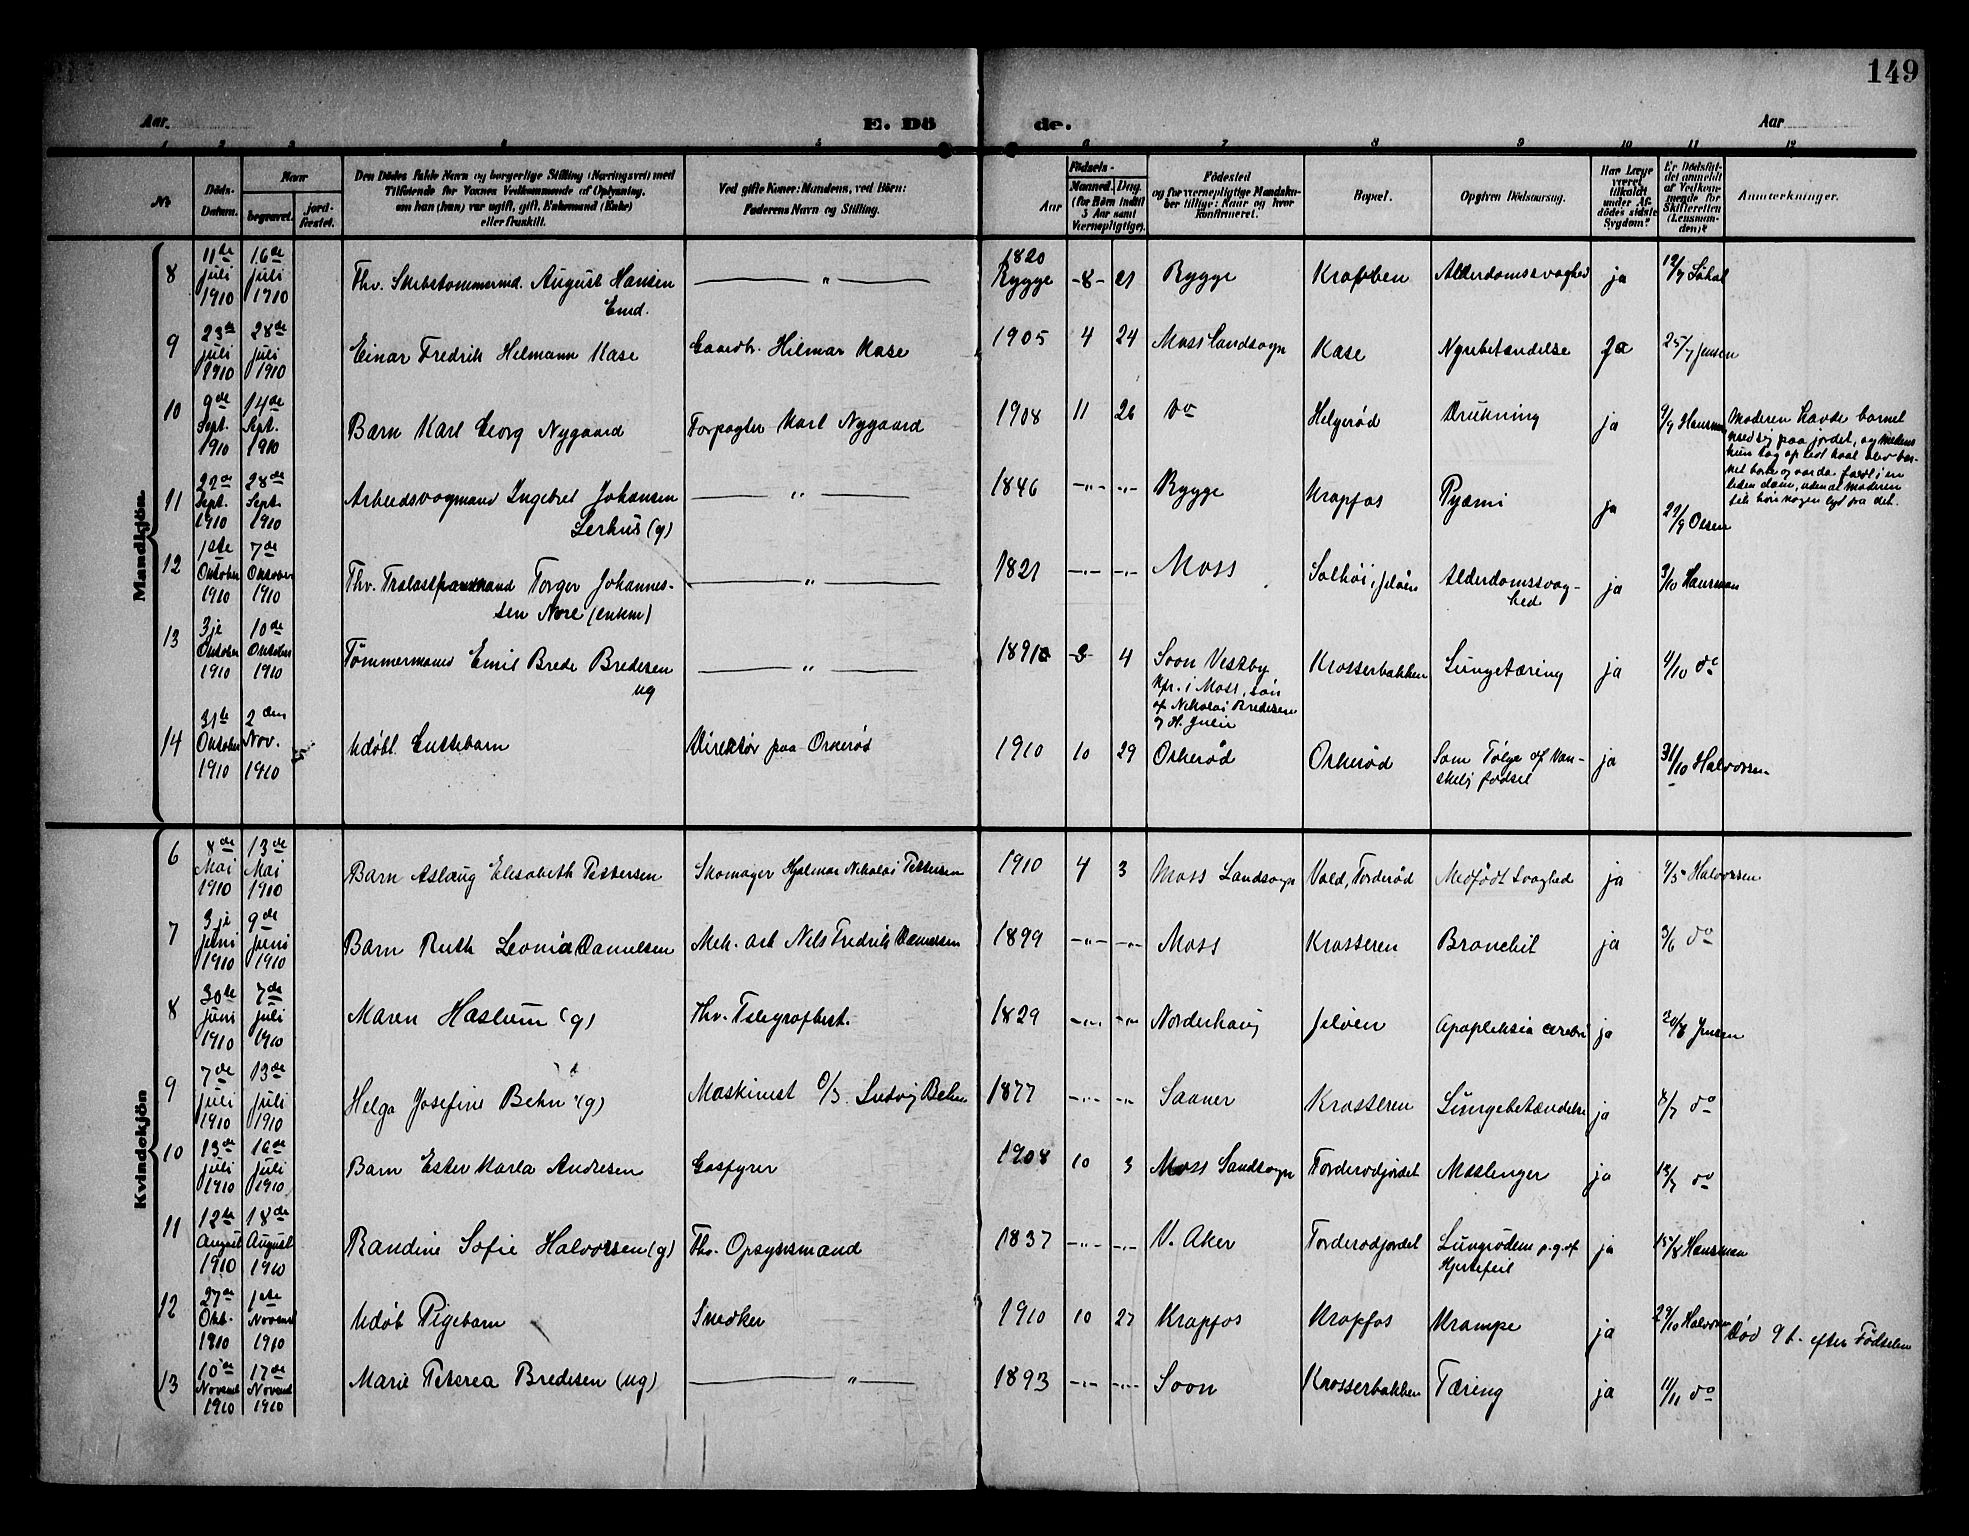 149
Aar
E. Dö de.
Aar
1 2 3 4 5 6 7 8 9 10 11 12
No
Döds-Datum.
Naar
begravet.
jordfæstet.
Den Dödes fulde Navn og borgerlige Stilling (Næringsvei) med
Tilføiende for Voxnes Vedkommende af Oplysning,
om han (hun) var ugift, gift, Enkemand (Enke)
eller fraskilt.
Ved gifte Koner: Mandens, ved Börn:
Faderens Navn og Stilling.
Aar
Födsels-
Maaned. Dag.
(for Börn indtil
3 Aar samt
Værnepligtige).
Födested
og for værnepligtige Mandskaber tillige: Naar og hvor
konfirmeret.
Bopæl.
Opgiven Dödsaarsag.
Har Læge
været
tilkaldt
under Afdödes sidste
Sygdom?
Er Dödsfaldet anmeldt
af Vedkommende for
Skifteretten
(Lensmanden)?
Anmærkninger.
Mandkjön
8 11te juli 1910 16de juli 1910 Thv. Skibstømmermd. August Hansen Emd. — " — 1820 Rygge 8 21 Rygge Krapben Alderdomssvaghed ja 12/7
9 23de juli 1910 28de juli 1910 Einar Fredrik Helmann Kase Gaardbr. Hilmar Kase 1905 4 24 Moss Landsogn Kase Nyrebetændelse ja 25/7 Jensen
10 9de Sept. 1910 14de Sept. 1910 Barn Karl Georg Nygaard Forpagter Karl Nygaard 1908 11 26 do Helgerød Drukning ja 9/9 Hansman Moderen havde barnet
med sig paa jordet, og medens
hun tog op lidt kaal blev barnet borte og var da faldt i en
liden dam, uden at moderen
fik høre nogen lyd fra det.
11 22de Sept. 1910 28de Sept. 1910 Arbeidsvogmand Ingebret Johansen Lerhus (g) — " — 1846 -"- -"- Rygge Krapfos Pyæmi ja 22/9 Olsen
12 1ste Oktober 1910 7de Oktober 1910 Thv. Torger Johannessen Nore (enkm) — " — 1821 -"- -"- Moss Solhøi, Jeløen Alderdomssvaghed ja 3/10 Hansman
13 3je Oktober 1910 10de Oktober 1910 Tømmermand Emil Brede Bredesen ug — " — 1891 3 4 Soon Vestby
Kfr. i Moss, søn
af Nikolai Bredesen
og H. Julie Krosserbakken Lungetæring ja 4/10 do
14 31te Oktober 1910 2den Nov. 1910 Udøbt Guttebarn Direktør paa Orkerød 1910 10 29 Orkerød Orkerød Som Følge af Vanskelig fødsel ja 31/10 Halvorsen
Kvindekjön
6 8de Mai 1910 13de Mai 1910 Barn Aslaug Elisabeth Pettersen Skomager Hjalmar Nikolai Pettersen 1910 4 3 Moss Landsogn Vold, Torderød Medfødt Svaghed ja 9/5 Halvorsen
7 3je Juni 1910 9de Juni 1910 Barn Ruth Leonida Danielsen Mek. arb Nils Fredrik Danielsen 1899 -"- -"- Moss Krosseren Bronchit ja 3/6 do
8 30te Juni 1910 7de juli 1910 Maren Haslum (g) Thv. Telegrafbest. 1829 -"- -"- Norderhaug Jeløen Apopleksia cerebri ja Jensen
9 7de juli 1910 13de juli 1910 Helga Josefine Behn (g) Maskinist O/S. Ludvig Behn 1877 -"- -"- Saaner Krosseren Lungebetændelse ja 8/7 do
10 13de juli 1910 16de juli 1910 Barn Ester Karla Andresen Gasfyrer 1908 10 3 Moss Landsogn Torderødjordet Meslinger ja 13/7 do
11 12te August 1910 18de August 1910 Randine Sofie Halvorsen (g) Thv. Opsynsmand 1837 -"- -"- V. Aker Torderødjordet Lungeødem p.g.af
Hjertefeil ja 15/8 Hansman
12 27de Okt. 1910 1ste Novemb 1910 Udøb Pigebarn Snedker 1910 10 27 Krapfos Krapfos Krampe ja 29/10 Halvorsen Død 9 t. efter Fødselen
13 10de Novemb 1910 17de Novemb 1910 Marie Peterea Bredesen (ug) — " — 1893 -"- -"- Soon Krosserbakken Tæring ja 11/11 do